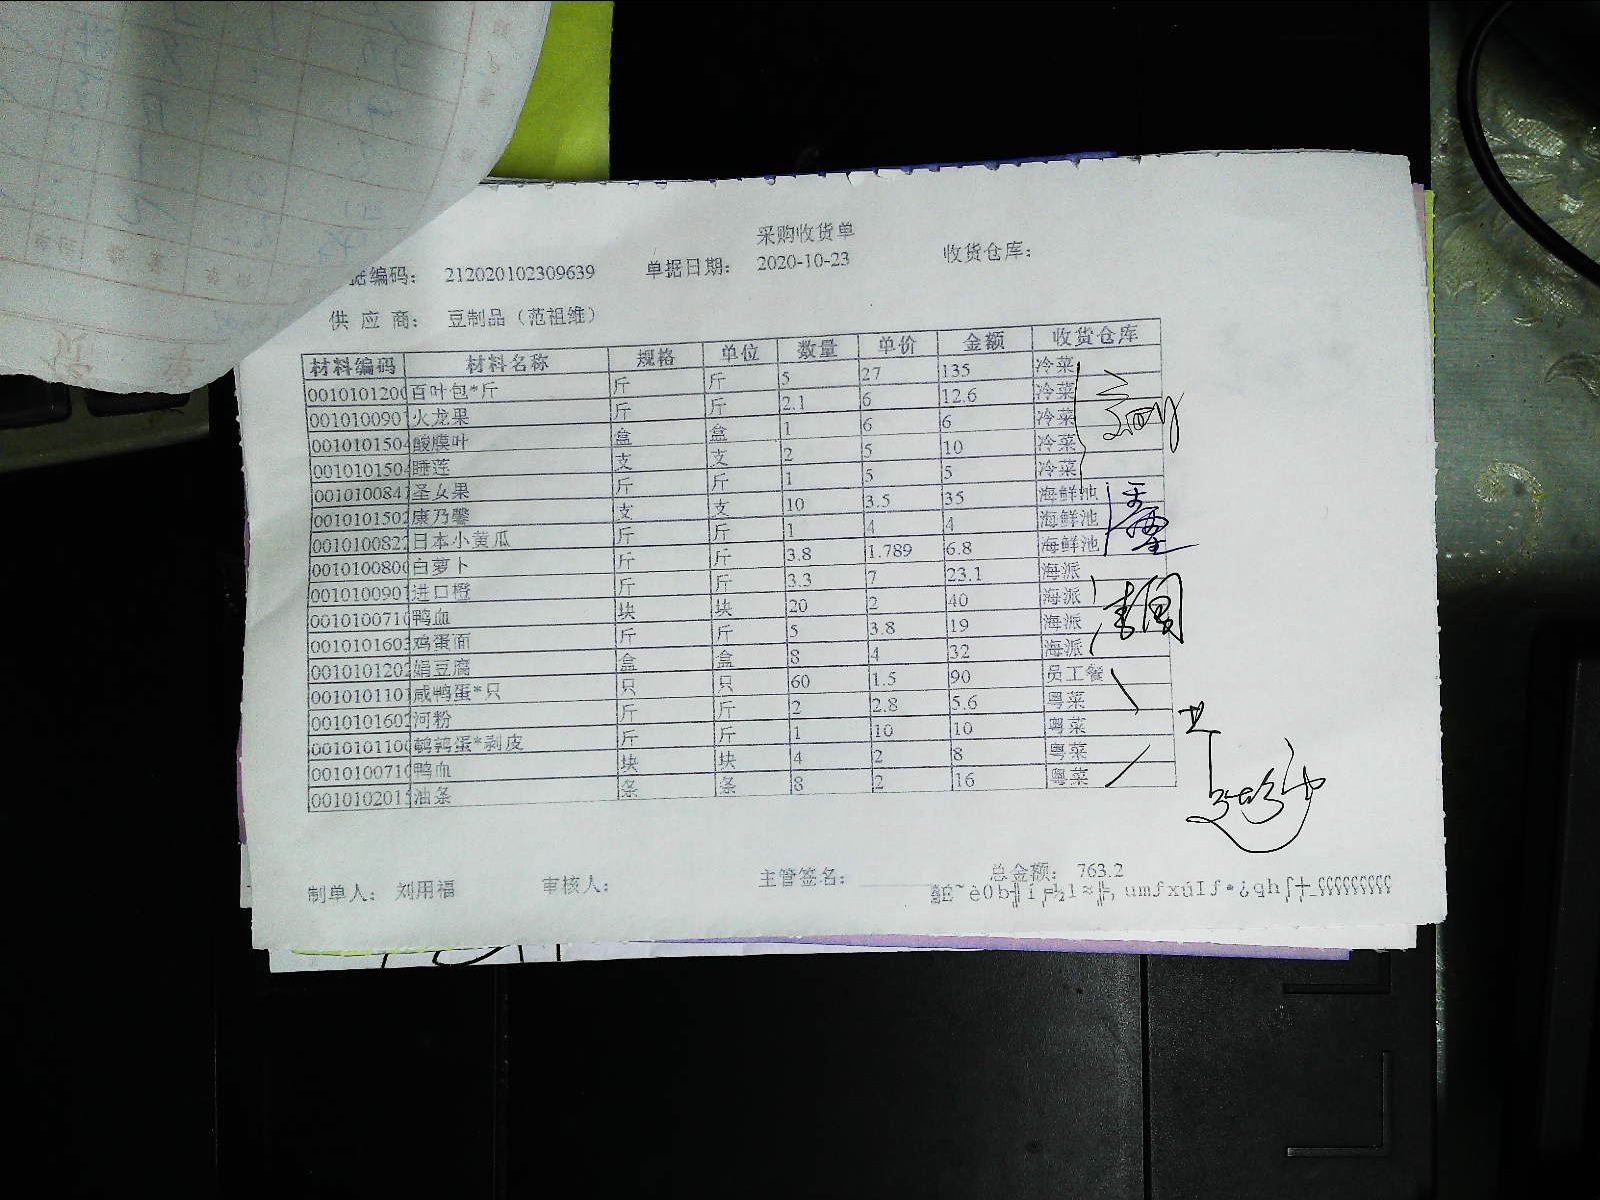 采购收货单
据编码： 212020102309639 单据日期： 2020-10-23 收货仓库：
供 应 商： 豆制品（范祖维）
材料编码 材料名称 规格 单位 数量 单价 金额 收货仓库
0010101200 百叶包*斤 斤 斤 5 27 135 冷菜
001010090 火龙果 斤 斤 2.1 6 12.6 冷菜
001010150 酸膜叶 盒 盒 1 6 6 冷菜
001010150 睡莲 支 支 2 5 10 冷菜
001010084 圣女果 斤 斤 1 5 5 冷菜
001010150 康乃馨 支 支 10 3.5 35 海鲜池
001010082 日本小黄瓜 斤 斤 1 4 4 海鲜池
001010080 白萝卜 斤 斤 3.8 1.789 6.8 海鲜池
001010090 进口橙 斤 斤 3.3 7 23.1 海派
001010071 鸭血 块 块 20 2 40 海派
001010160 鸡蛋面 斤 斤 5 3.8 19 海派
001010120 娟豆腐 盒 盒 8 4 32 海派
001010110 咸鸭蛋*只 只 只 60 1.5 90 员工餐
001010160 河粉 斤 斤 2 2.8 5.6 粤菜
001010110 鹌鹑蛋*剥皮 斤 斤 1 10 10 粤菜
001010071 鸭血 块 块 4 2 8 粤菜
001010201 油条 条 条 8 2 16 粤菜
制单人： 刘用福 审核人： 主管签名： 总金额： 763.2